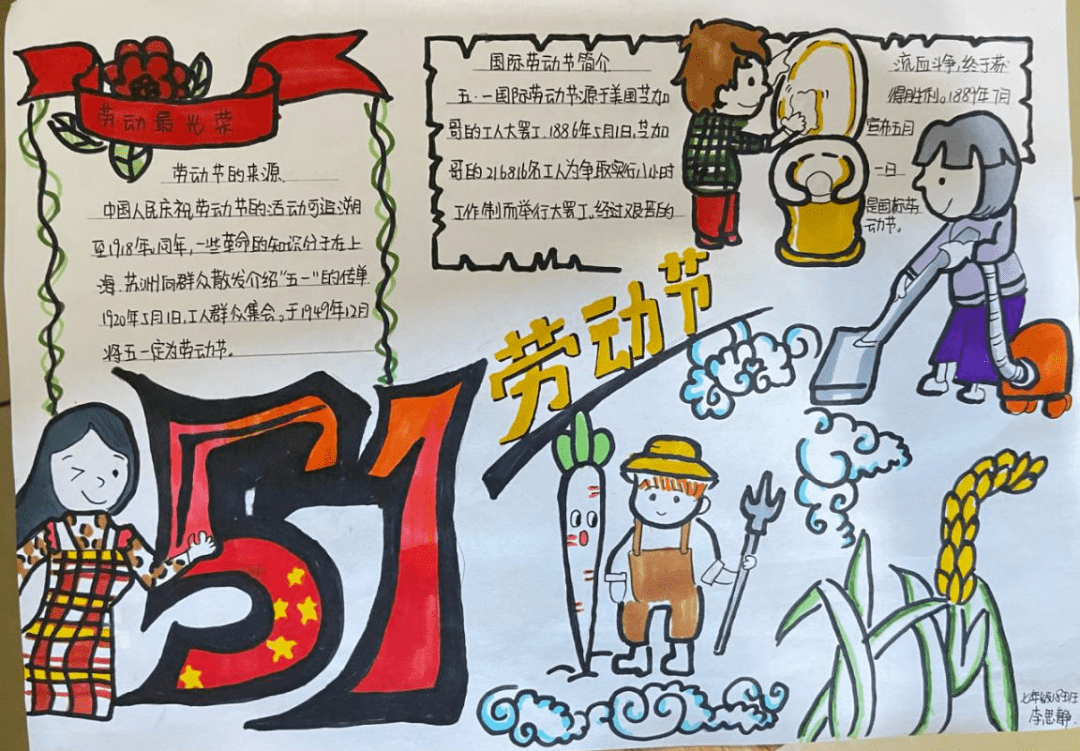 劳动最光荣
劳动节的来源
中国人民庆祝劳动节的活动可追溯
至1918年,同年,一些革命的知识分子在上
海、苏州向群众散发介绍“五一”的传单
1920年5月1日,工人群众集会。于1949年12月
将五一定为劳动节。
国际劳动节简介
五·一国际劳动节源于美国芝加
哥的工人大罢工,1886年5月1日,芝加
哥的216816名工人为争取实行八小时
工作制而举行大罢工。经过艰苦的
流血斗争,终于获
得胜利。1889年7月
宣布五月
一日
是国际劳
动节。
劳动节
51
七年级18班
李思静